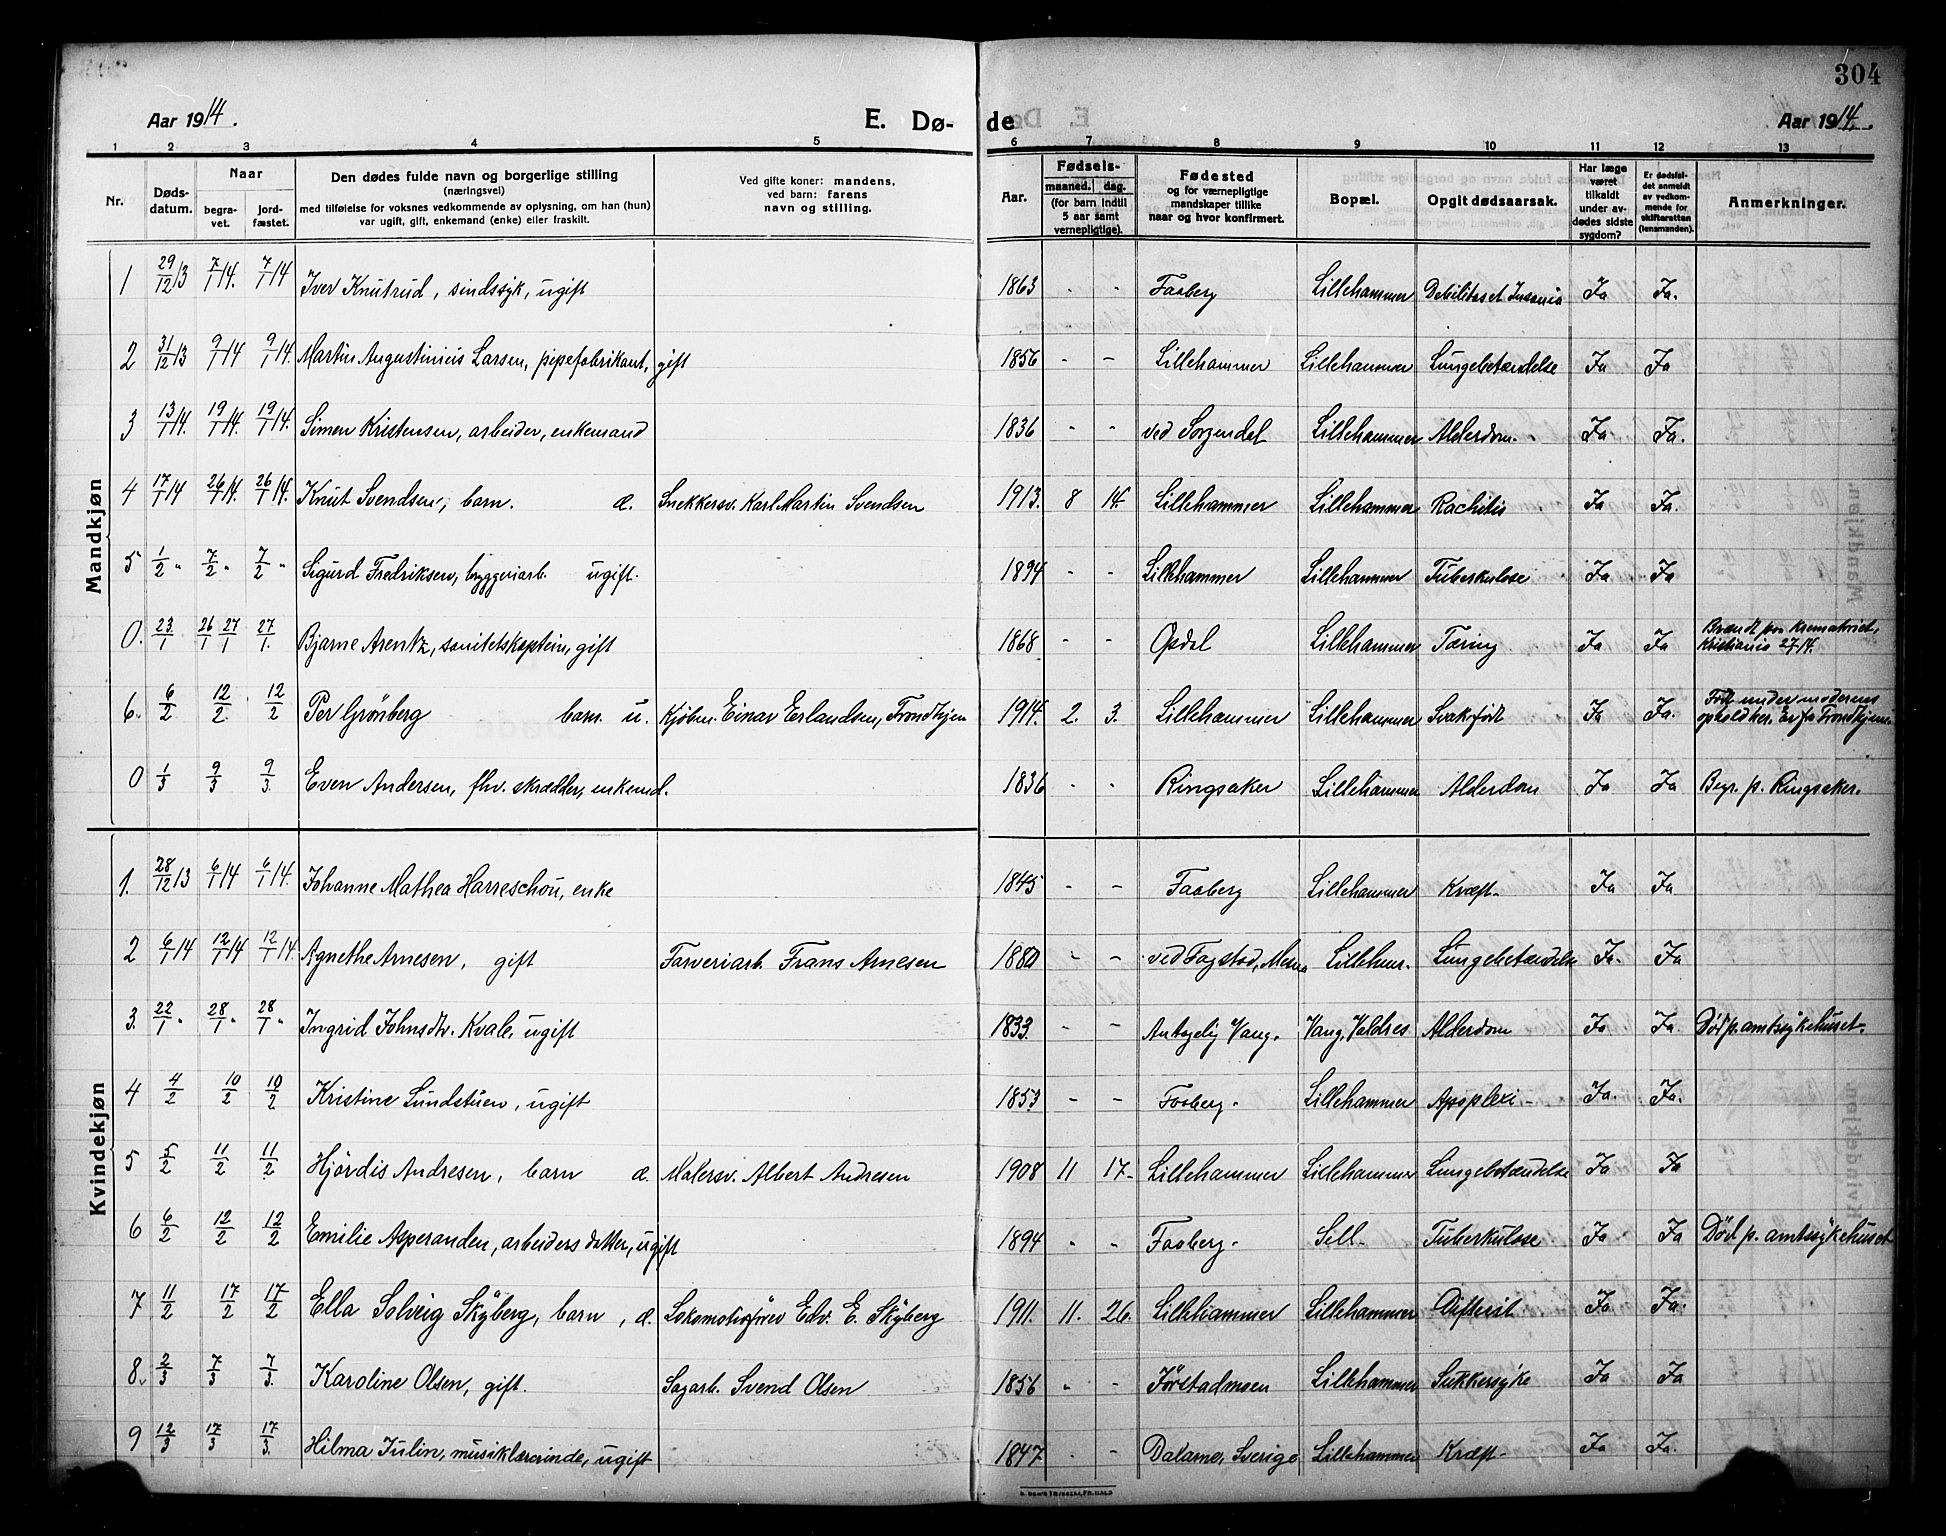 304
Aar 1914. E. Dø- de Aar 1914.
1 2 3 4 5 6 7 8 9 10 11 12 13
Nr. Døds-datum. Naar begra-vet. jord-fæstet. Den dødes fulde navn og borgerlige stilling (næringsvei) med tilføielse for voksnes vedkommende av oplysning, om han (hun) var ugift, gift, enkemand (enke) eller fraskilt. Ved gifte koner: mandens, ved barn: farens navn og stilling. Aar. Fødsels- maaned. dag. (for barn indtil 5 aar samt vernepligtige). Fødested og for værnepligtige mandskaper tillike naar og hvor konfirmert. Bopæl. Opgit dødsaarsak. Har læge været tilkaldt under av-dødes sidste sygdom? Er dødsfal-det anmeldt av vedkom-mende for skifteretten (lensmanden). Anmerkninger.
Mandkjøn
1 29/12 13 7/1 14. 7/1 14 Iver Knutrud, sindssyk, ugift 1863 - - Faaberg Lillehammer Debilitas et Insania Ja Ja.
2 31/12 13 9/1 14 9/1 14. Martin Augustinius Larsen, pipefabrikant, gift 1856 - - Lillehammer Lillehammer Lungebetændelse Ja Ja
3 13/1 14. 19/1 14. 19/1 14. Simen Kristensen, arbeider, enkemand 1836 - - ved Sorgendal Lillehammer Alderdom. Ja Ja.
4 17/1 14 26/1 14. 26/1 14. Knut Svendsen, barn. æ. Snekkersv. Karl Martin Svendsen 1913. 8 14. Lillehammer Lillehammer Rachitis Ja Ja.
5 1/2 " 7/2 " 7/2 " Sigurd Fredriksen, bryggeriarb. ugift. 1894 - - Lillehammer Lillehammer Tuberkulose Ja Ja
0. 23/1 26/1 27/1 27/1. Bjarne Arentz, sanitetskaptein, gift 1868 - - Opdal Lillehammer Tæring Ja Ja Brændt paa krematoriet, Kristiania 27/1 14.
6. 6/2 12/2 12/2 Per Grönberg barn. u. Kjøbm. Einar Erlandsen, Trondhjem 1914. 2. 3. Lillehammer Lillehammer Svakfødt Ja Ja. Født under moderens ophold her, er fra Trondhjem
0 1/3 9/3 9/3. Even Andersen, fhv. skrædder, enkemd. 1836 - - Ringsaker Lillehammer Alderdom Ja Ja Begr. p. Ringsaker.
Kvindekjøn
1. 28/12 13 6/1 14 6/1 14. Johanne Mathea Harreschou, enke 1845 - - Faaberg Lillehammer Kræft- Ja Ja
2 6/1 14 12/1 14 12/1 14. Agnethe Arnesen, gift Farveriarb. Frans Arnesen 1880 - - ved Fagstad, Mesna Lillehmr. Lungebetændelse Ja. Ja
3. 22/1 " 28/1 " 28/1 " Ingrid Johnsdtr. Kvale, ugift 1833. - - Antagelig Vang. Vang, Valdres Alderdom Ja Ja. Død p. amtsykehuset.
4 4/2 10/2 10/2 Kristine Lundstuen, ugift 1853 - - Faaberg. Lillehammer Apoplexi- Ja. Ja.
5 5/2 11/2 11/2 Hjördis Andresen, barn æ. Malersv. Albert Andresen 1908 11 17- Lillehammer Lillehammer Lungebetændelse Ja Ja
6 6/2 12/2 12/2 Emilie Asperanden, arbeiders datter, ugift 1894 - - Faaberg. Lill- Tuberkulose Ja Ja Død p. amtssykehuset
7 11/2 17/2 17/2 Ella Solveig Skÿberg, barn, æ. Lokomotivfører Edv. E. Skÿberg 1911. 11. 26. Lillehammer Lillehammer Difterit. Ja Ja.
8. 2/3 7/3 7/3. Karoline Olsen, gift. Sagarb. Svend Olsen 1856 - - Jörstadmoen Lillehammer Sukkersyke Ja Ja
9 12/3 17/3 17/3. Hilma Julin, musiklærerinde, ugift 1847 - - Dalarne, Sverige Lillehammer Kræft- Ja Ja.